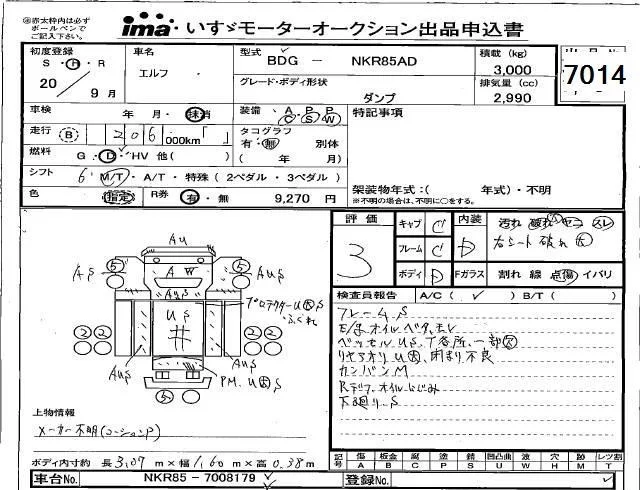 ※赤太枠内は必ず
ボールペンで
ご記入下さい。
ima いすゞモーターオークション出品申込書
初度登録 S・H・R 20 年 9月
車名 エルフ
型式 BDG － NKR85AD
グレード・ボディ形状 ダンプ
積載 (kg) 3,000
排気量 (cc) 2,990
7014
車検 年 月・抹消
装備 A C P S P W
特記事項
走行 B 206 000km「 」
タコグラフ 有・無 別体 ( 年 月)
燃料 G・D・HV 他( )
シフト 6 M/T・A/T・特殊(2ペダル・3ペダル)
架装物年式:( 年式)・不明
※不明の場合は、不明に○をする。
色 指定 R券 有・無 9,270 円
評価 3
キャブ C 内装 D 汚れ 破れ コゲ スレ
右シート破れ 大
フレーム C
ボディ D Fガラス 割れ 線 点傷 イバリ
検査員報告 A/C( ✓ ) B/T( )
フレーム S
E/g オイルベタ、モレ
ベッセル US、T各所、一部大
リヤアオリ U大 閉まり不良
カンバン M
Rデフ オイルにじみ
下廻り S
AU
5 5
AS AS
AW
AUS
プロテクターU大 S
・ふくれ
US
2 2 2 2
AUS AUS
PM、U大 S
5
上物情報
メーカー不明(コーションP)
ボディ内寸約 長 3.07 m×幅 1.60 m×高 0.38 m
記号 傷 A 板金 B 腐 C 塗 P 錆 S 凹凸曲 U 波 W 穴 H 跡 M レンズ割 T
車台No. NKR85－7008179
登録No.